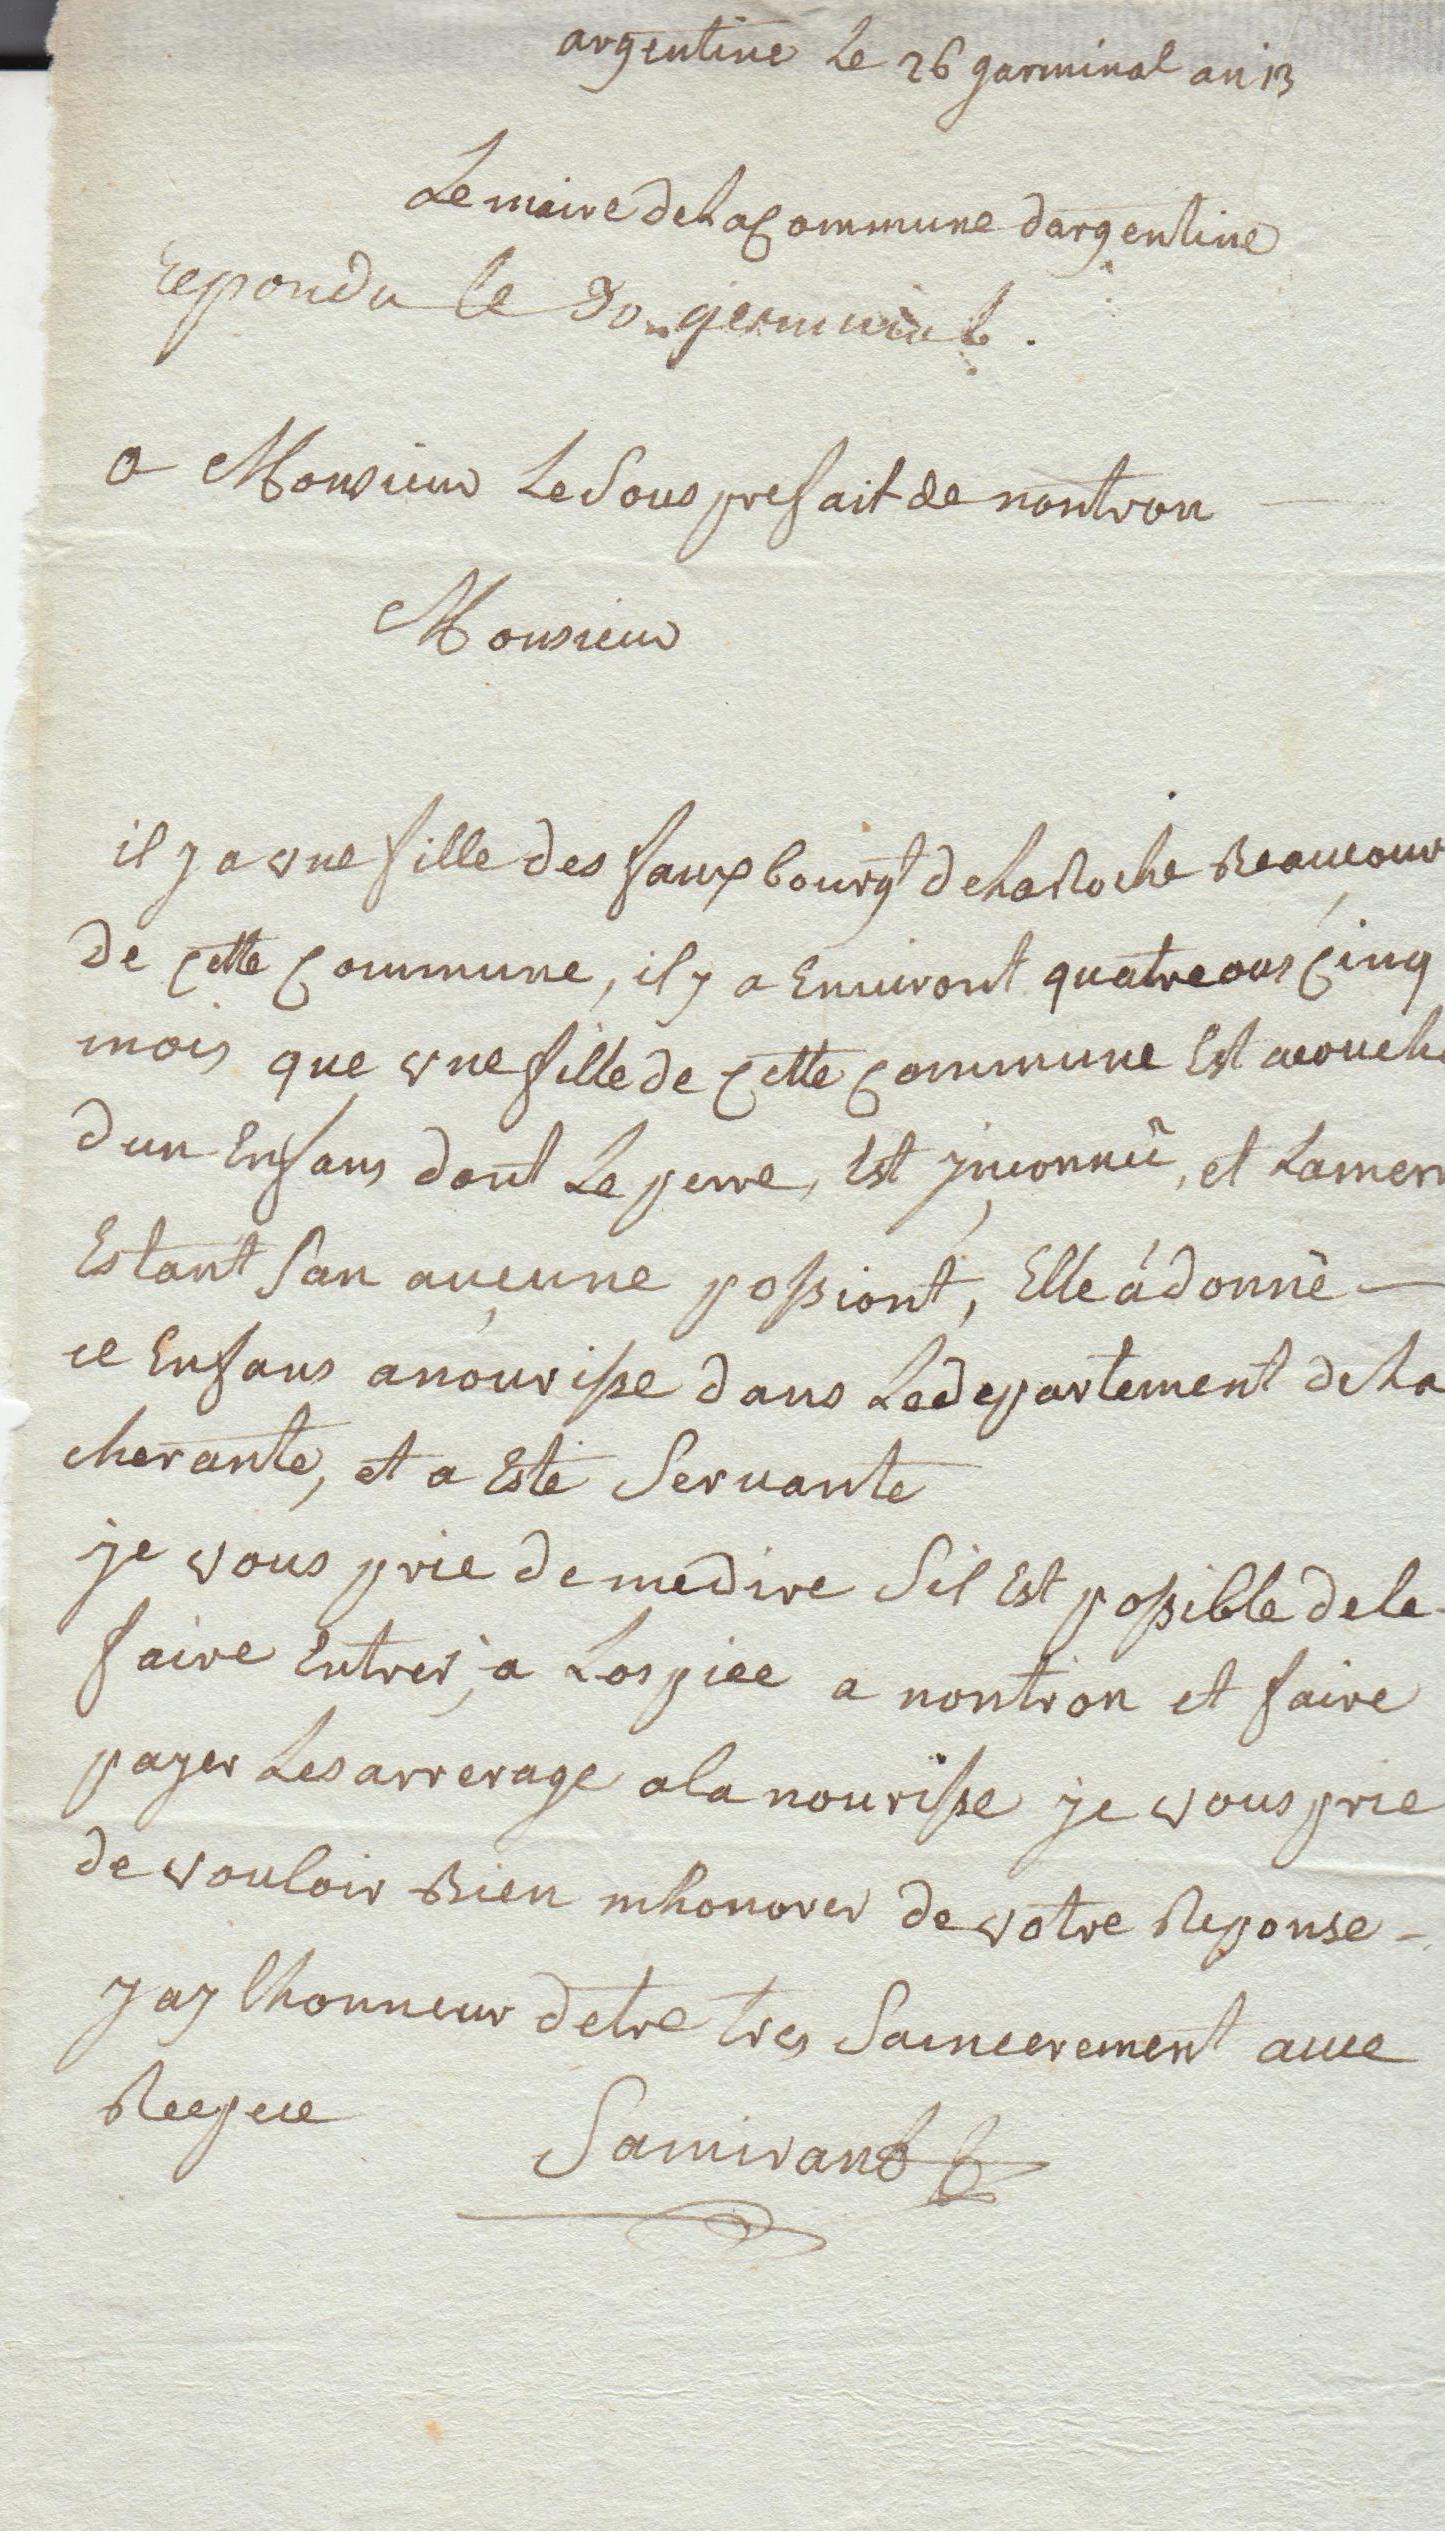 argentine Le 26 garminal an 13
Le maire de La Commune dargentine
repondu le 30 germinal.
a Monsieur Le Sous prefait de nontron
Monsieur
il y a une fille des fauxbourgt de La Roche Beaucour
de Cette Commune, il y a Environt quatre ous Cinq
mois que une fille de Cette Commune Est acouche
dun Enfans dont Le perre, Est jnconnû, et La merr
Estant San aucune possiont, Elle à donnè
ce Enfans a nourisse dans Le departement de La
cherante, et a Esté Servante
je vous prie de me dire Sil Est possible de le
faire Entrer, a Lospice a nontron et faire
payer Les arrerage a la nourisse je vous prie
de vouloir Bien mhonorer de votre Reponse
J ay lhonneur detre tres Saincerement avec
Respece